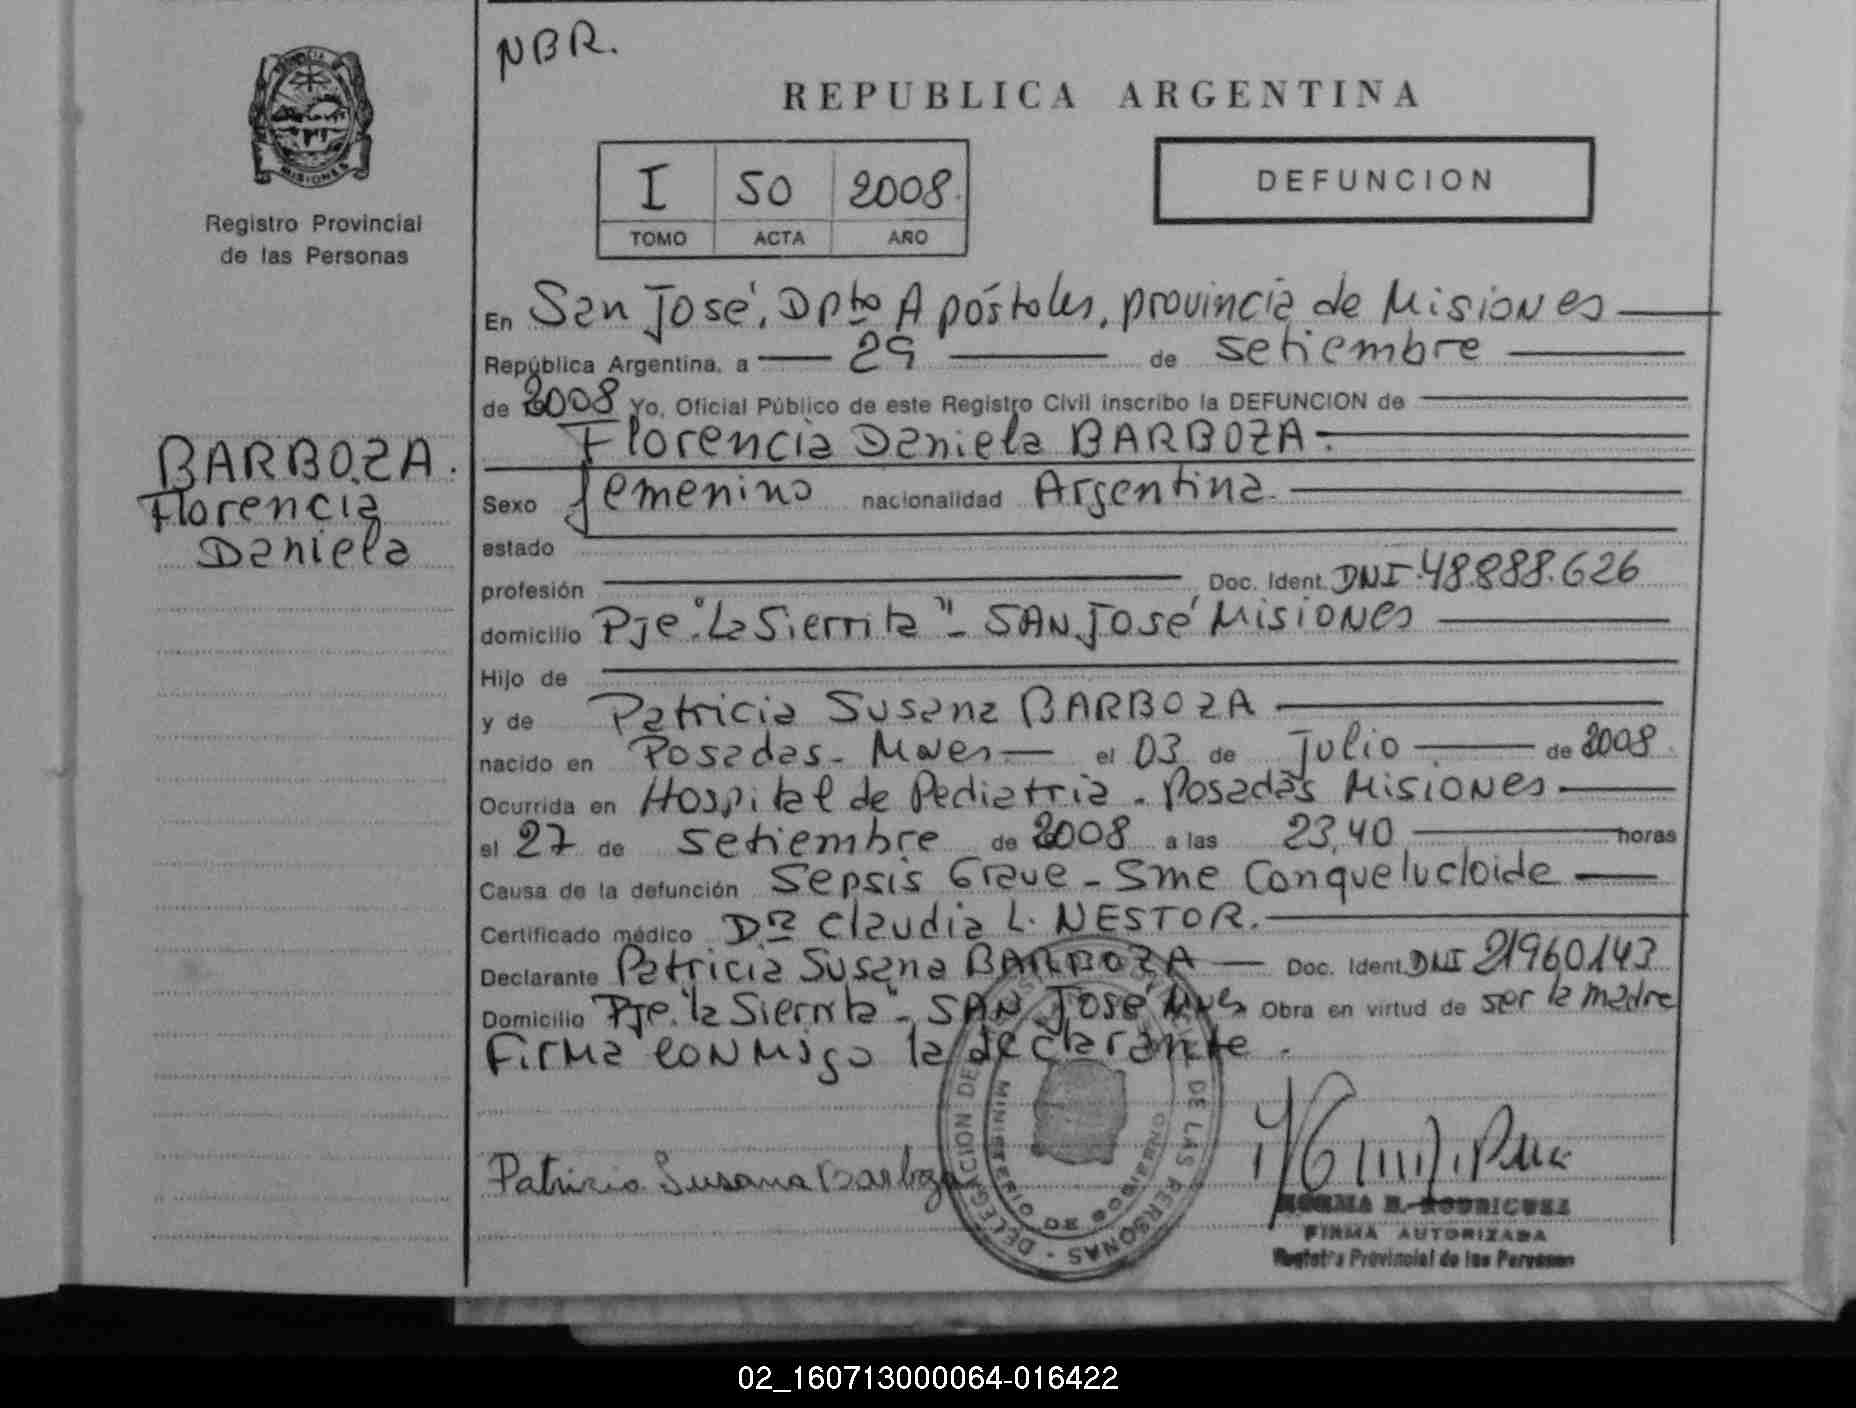 NBR.
REPUBLICA ARGENTINA
I 50 2008
TOMO ACTA AÑO
DEFUNCION
PROVINCIA
MISIONES
Registro Provincial
de las Personas
BARBOZA.
Florencia
Daniela
En San José, Dpto Apóstoles, provincia de Misiones
República Argentina, a 29 de setiembre
de 2008 Yo, Oficial Público de este Registro Civil inscribo la DEFUNCION de
Florencia Daniela BARBOZA.
Sexo femenino nacionalidad Argentina.
estado
profesión Doc. Ident. DNI 48.888.626
domicilio Pje "La Sierrita" - SAN José Misiones
Hijo de
y de Patricia Susana BARBOZA
nacido en Posadas - Mnes el 03 de julio de 2008
Ocurrida en Hospital de Pediatria - Posadas Misiones
el 27 de setiembre de 2008 a las 23,40 horas
Causa de la defunción Sepsis Grave - Sme Conquelucloide
Certificado médico Dra Claudia L. NESTOR.
Declarante Patricia Susana BARBOZA Doc. Ident. DNI 21960143
Domicilio Pje. "la Sierrita" - SAN José Mnes Obra en virtud de ser la madre
Firma conmigo la declarante.
Patricia Susana Barboza
DELEGACION DE LAS PERSONAS
MINISTERIO DE GOBIERNO
NORMA B. RODRIGUEZ
FIRMA AUTORIZADA
Registro Provincial de las Personas
02_160713000064-016422